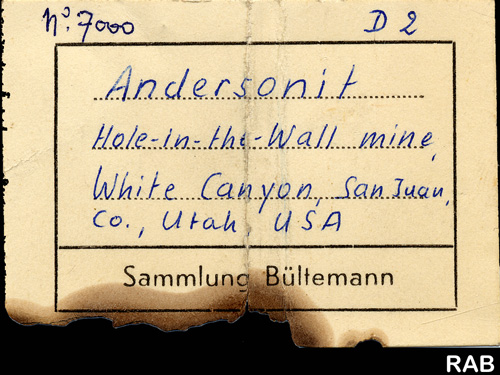 No. 7000 D 2
Andersonit
Hole-in-the-Wall mine,
White Canyon, San Juan,
Co., Utah, USA
Sammlung Bültemann
RAB